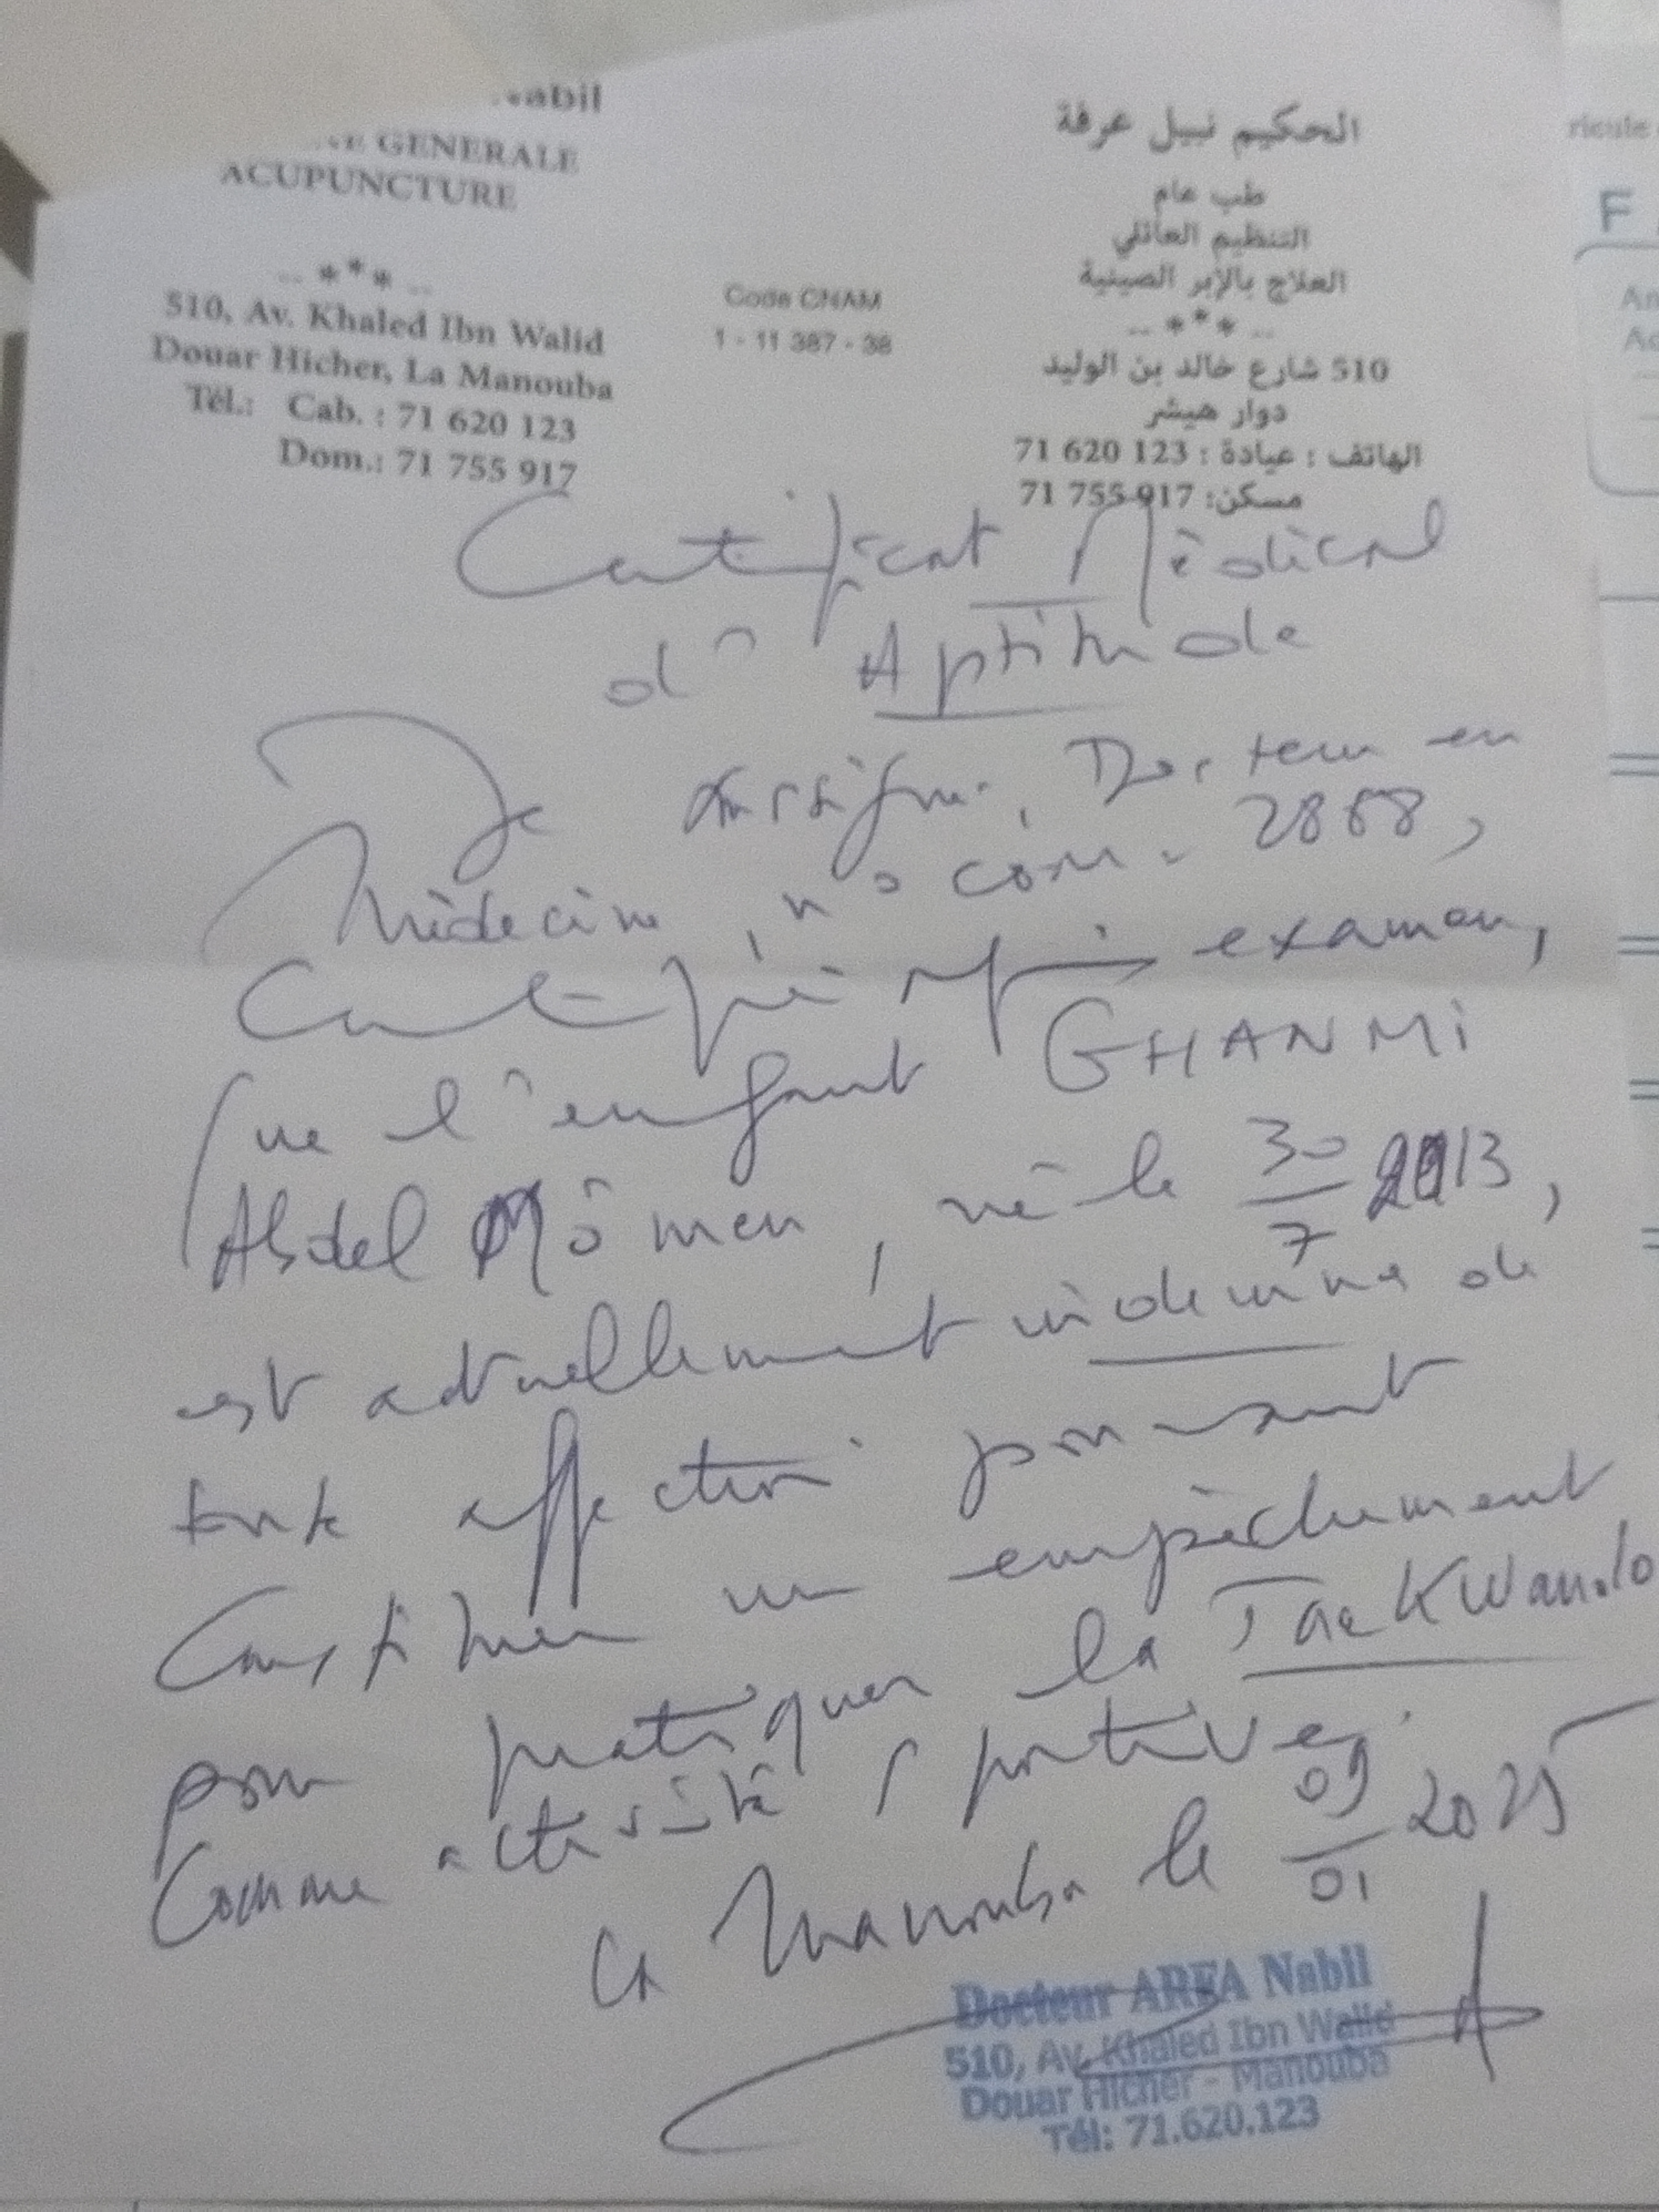 Nabil
GENERALE
ACUPUNCTURE
-- *** --
510, Av. Khaled Ibn Walid
Douar Hicher, La Manouba
Tél.: Cab. : 71 620 123
Dom.: 71 755 917
Code CNAM
1 - 11 387 - 38
الحكيم نبيل عرفة
طب عام
التنظيم العائلي
العلاج بالإبر الصينية
-- *** --
510 شارع خالد بن الوليد
دوار هيشر
الهاتف : عيادة : 123 620 71
مسكن: 917 755 71
Certificat Médical
d'Aptitude
Je sousigné, Docteur en
Médecine, n° com. 2888,
Certifie après examen,
que l'enfant GHANMI
Abdel Mômen, né le 30/7 2013,
est actuellement indemne de
toute affection pouvant
Constituer un empêchement
pour pratiquer la TaeKWando
Comme activité sportive.
La Manouba le 09/01 2025
Docteur ARFA Nabil
510, Av. Khaled Ibn Walid
Douar Hicher - Manouba
Tél: 71.620.123
ricule
F